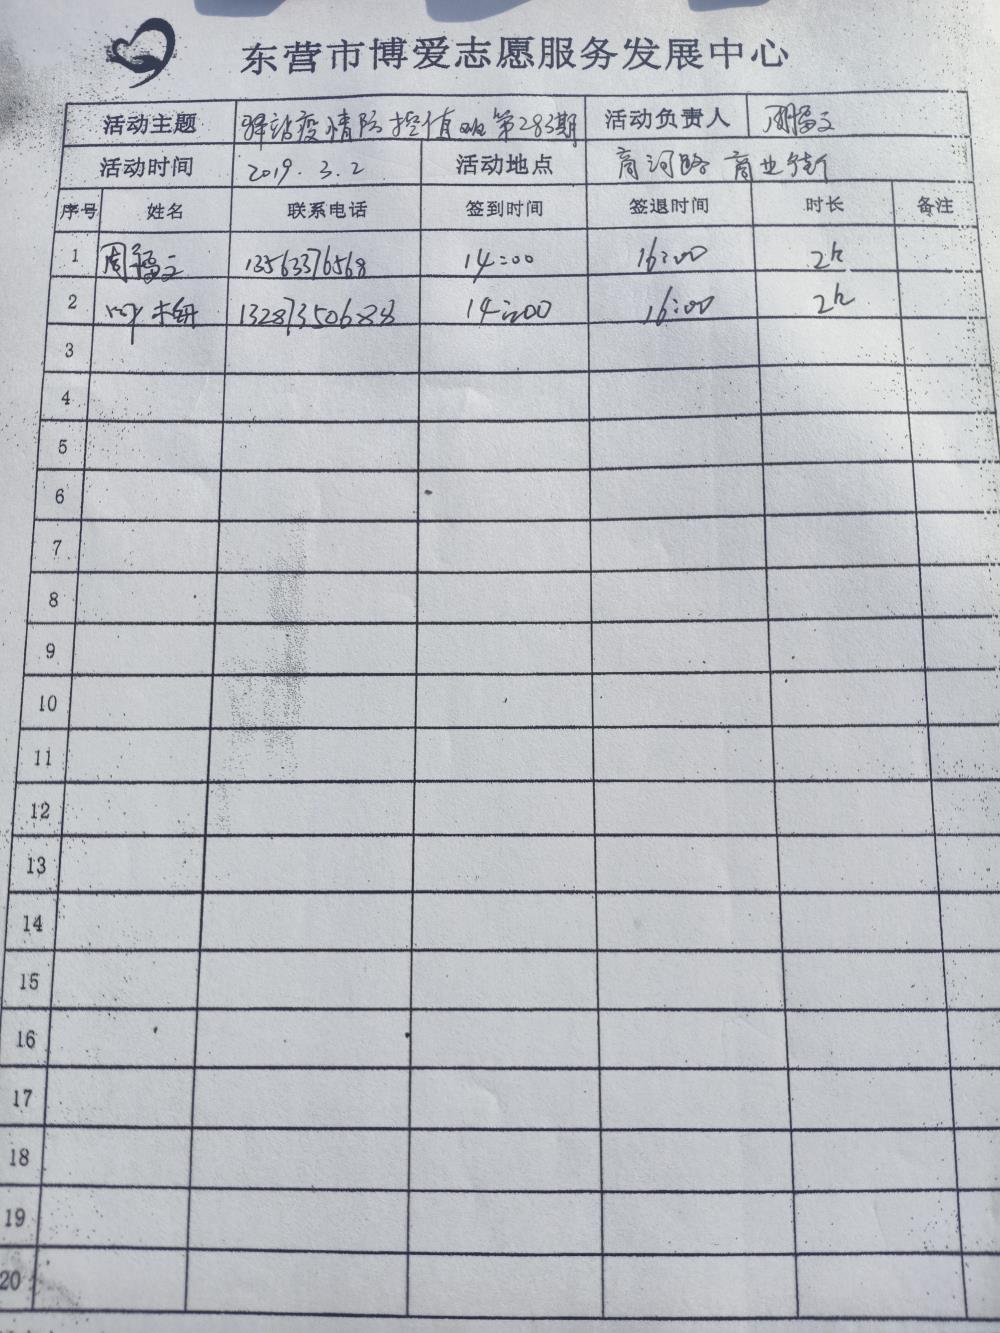 东营市博爱志愿服务发展中心
活动主题 驿站疫情防控值班第283期 活动负责人
活动时间 2019.3.2 活动地点 商河路 商业街
序号 姓名 联系电话 签到时间 签退时间 时长 备注
1 13563376568 14:00 16:00 2h
2 13287350688 14:00 16:00 2h
3
4
5
6
7
8
9
10
11
12
13
14
15
16
17
18
19
20